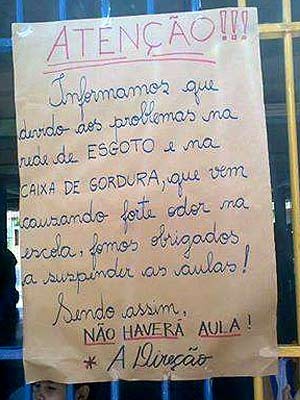 ATENÇÃO!!!
Informamos que
devido aos problemas na
rede de ESGOTO e na
CAIXA DE GORDURA, que vem
causando forte odor na
escola, fomos obrigados
a suspender as aulas!
Sendo assim,
NÃO HAVERÁ AULA!
* A Direção